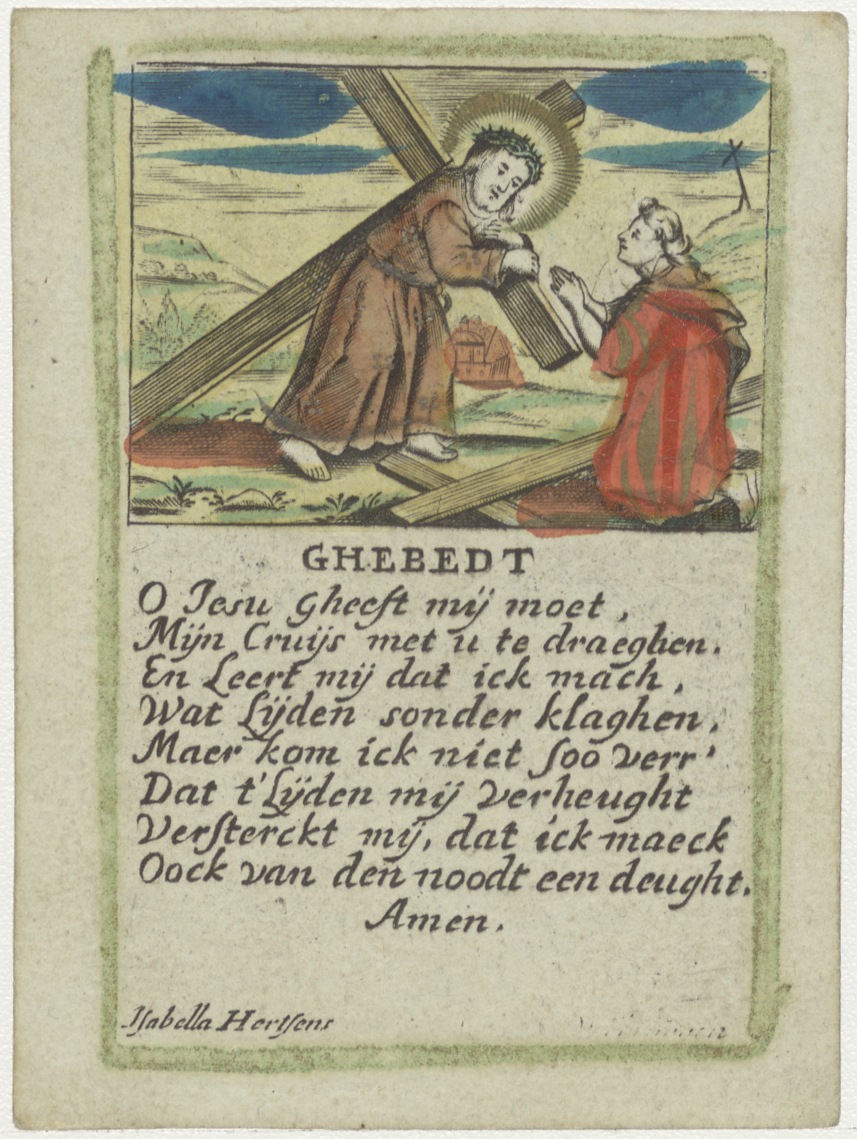 GHEBEDT
O Jesu gheeft mij moet,
Mijn Cruijs met u te draeghen.
En Leert mij dat ick mach,
Wat Lijden sonder klaghen,
Maer kom ick niet soo verr'
Dat t'Lijden mij verheught
Versterckt mij, dat ick maeck
Oock van den noodt een deught.
Amen.
Isabella Hertsens